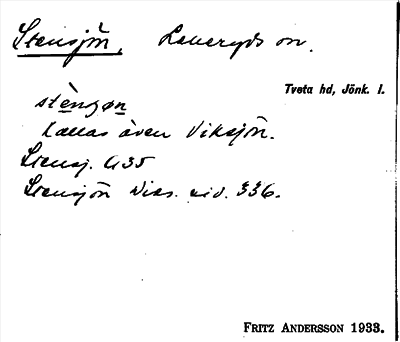 Stensjön, Lauryds sn.
Tveta hd, Jönk. l.
stèngøn
kallas även Viksjön.
Stensj. G35
Stensjön Wies. vid. 336.
FRITZ ANDERSSON 1933.